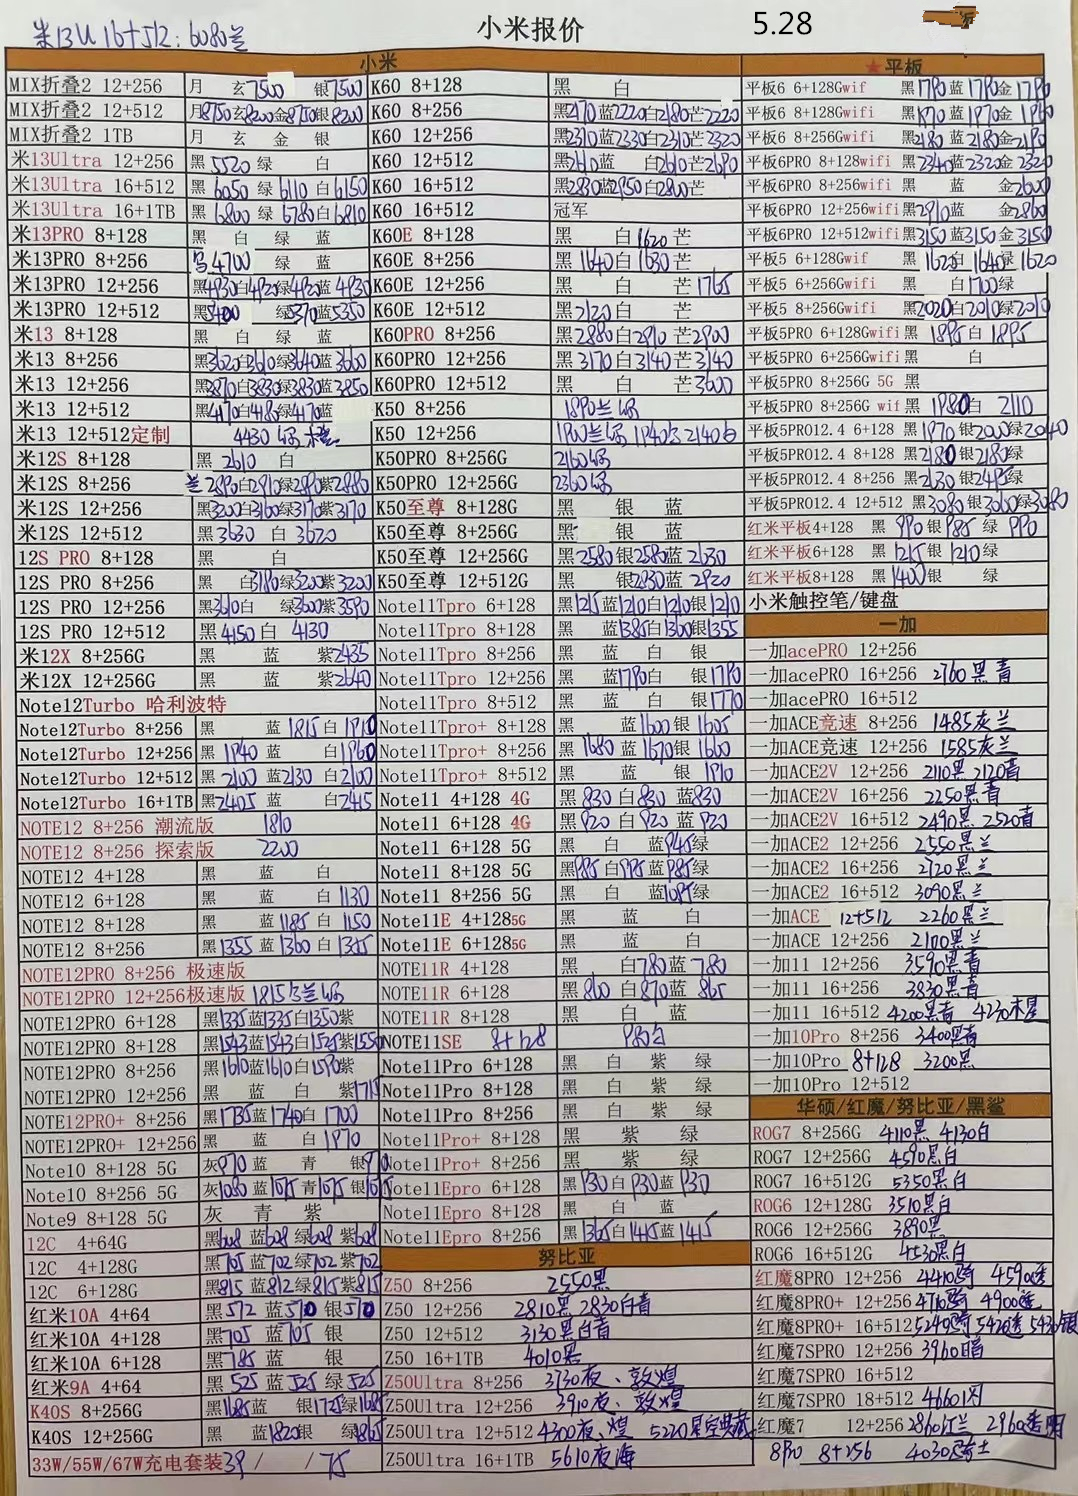 米13U 16+512:6080兰
小米报价
5.28
小米
MIX折叠2 12+256 月 玄7500 银7500
MIX折叠2 12+512 月8750玄8200金8750银8200
MIX折叠2 1TB 月 玄 金 银
米13Ultra 12+256 黑5520 绿 白
米13Ultra 16+512 黑6050 绿6110 白6150
米13Ultra 16+1TB 黑6800 绿6780白6810
米13PRO 8+128 黑 白 绿 蓝
米13PRO 8+256 4700 绿 蓝
米13PRO 12+256 黑4930白4920绿4920蓝4930
米13PRO 12+512 绿5370蓝5350
米13 8+128 黑 白 绿 蓝
米13 8+256 黑3620白3610绿3640蓝3600
米13 12+256 黑3870白3830绿3830蓝3850
米13 12+512 黑4170白4185绿4170蓝
米13 12+512定制 4430
米12S 8+128 黑 2610 白
米12S 8+256 兰2890白2910绿2890紫2880
米12S 12+256 黑3200白3160绿3170紫3170
米12S 12+512 黑3630 白 3620
12S PRO 8+128 黑 白
12S PRO 8+256 黑 白3180绿3200紫3200
12S PRO 12+256 黑3610白 绿3600紫3590
12S PRO 12+512 黑4150白 4130
米12X 8+256G 黑 蓝 紫2435
米12X 12+256G 黑 蓝 紫2640
Note12Turbo 哈利波特
Note12Turbo 8+256 黑 蓝1815白1910
Note12Turbo 12+256 黑1940 蓝 白1960
Note12Turbo 12+512 黑2100 蓝2130 白2100
Note12Turbo 16+1TB 黑2405 蓝 白2415
NOTE12 8+256 潮流版 1810
NOTE12 8+256 探索版 2200
NOTE12 4+128 黑 蓝 白
NOTE12 6+128 黑 蓝 白1130
NOTE12 8+128 黑 蓝1185白1150
NOTE12 8+256 黑1355 蓝1360白1345
NOTE12PRO 8+256 极速版
NOTE12PRO 12+256极速版 1815
NOTE12PRO 6+128 黑1335蓝1335白1350紫
NOTE12PRO 8+128 黑1543蓝1543白1525紫1550
NOTE12PRO 8+256 黑1610蓝1610白1590紫
NOTE12PRO 12+256 黑 蓝 白 紫1715
NOTE12PRO+ 8+256 黑1735蓝1740白1700
NOTE12PRO+ 12+256 黑 蓝 白1970
Note10 8+128 5G 灰970 蓝 青 银
Note10 8+256 5G 灰1080 蓝1075 青1075 银1075
Note9 8+128 5G 灰 青 紫
12C 4+64G 黑608 蓝608 绿608 紫608
12C 4+128G 黑705 蓝702绿702紫702
12C 6+128G 黑815 蓝812绿815紫815
红米10A 4+64 黑572 蓝570 银570
红米10A 4+128 黑705 蓝705 银
红米10A 6+128 黑785 蓝 银
红米9A 4+64 黑525 蓝525 绿525
K40S 8+256G 黑1685 蓝 银1725绿1685
K40S 12+256G 黑 蓝 银1820 绿1865
33W/55W/67W充电套装39 / / 75
K60 8+128 黑 白
K60 8+256 黑2170蓝2220白2180芒2220
K60 12+256 黑2310蓝2330白2310芒2320
K60 12+512 黑2610蓝 白2610芒2690
K60 16+512 黑2830蓝2950白2800芒
K60 16+512 冠军
K60E 8+128 黑 白1620芒
K60E 8+256 黑1640白1630芒
K60E 12+256 黑 白 芒1765
K60E 12+512 黑2120白 芒
K60PRO 8+256 黑2880白2910芒2900
K60PRO 12+256 黑3170白3140芒3140
K60PRO 12+512 黑 白 芒3600
K50 8+256 1890
K50 12+256 1900 1940 2140白
K50PRO 8+256G 2160
K50PRO 12+256G 2360
K50至尊 8+128G 黑 银 蓝
K50至尊 8+256G 黑 银 蓝
K50至尊 12+256G 黑2580银2580蓝2630
K50至尊 12+512G 黑 银2930蓝2920
Note11Tpro 6+128 黑1215蓝1210白1210银1210
Note11Tpro 8+128 黑 蓝1385白1360银1355
Note11Tpro 8+256 黑 蓝 白 银
Note11Tpro 12+256 黑 蓝1790白 银1790
Note11Tpro 8+512 黑 蓝 白 银1770
Note11Tpro+ 8+128 黑 蓝1600银1605
Note11Tpro+ 8+256 黑1680蓝1670银1660
Note11Tpro+ 8+512 黑 蓝 银1910
Note11 4+128 4G 黑830白830 蓝830
Note11 6+128 4G 黑920白920蓝920
Note11 6+128 5G 黑 白 蓝945绿
Note11 8+128 5G 黑985白995蓝985绿
Note11 8+256 5G 黑 白 蓝1095绿
Note11E 4+1285G 黑 蓝 白
Note11E 6+1285G 黑 蓝 白
NOTE11R 4+128 黑 白780蓝780
NOTE11R 6+128 黑860白870蓝865
NOTE11R 8+128 黑 白 蓝
NOTE11SE 8+128 980白
Note11Pro 6+128 黑 白 紫 绿
Note11Pro 8+128 黑 白 紫 绿
Note11Pro 8+256 黑 白 紫 绿
Note11Pro+ 8+128 黑 紫 绿
Note11Pro+ 8+256 黑 紫 绿
Note11Epro 6+128 黑930白930蓝930
Note11Epro 8+128 黑 白 蓝
Note11Epro 8+256 黑1365白1445蓝1415
努比亚
Z50 8+256 2550黑
Z50 12+256 2810黑 2830白青
Z50 12+512 3130黑白青
Z50 16+1TB 4010黑
Z50Ultra 8+256 3730夜、敦煌
Z50Ultra 12+256 3910夜、敦煌
Z50Ultra 12+512 4300夜、煌 5220星空典藏
Z50Ultra 16+1TB 5610夜海
★平板
平板6 6+128Gwif 黑1790蓝1790金1790
平板6 8+128Gwifi 黑1970蓝1970金1960
平板6 8+256Gwifi 黑2180蓝2180金2190
平板6PRO 8+128wifi 黑2340蓝2320金2320
平板6PRO 8+256wifi 黑 蓝 金2600
平板6PRO 12+256wifi黑2910蓝 金2860
平板6PRO 12+512wifi黑3150蓝3150金3150
平板5 6+128Gwif 黑1620白1640绿1620
平板5 6+256Gwif 黑 白1700绿
平板5 8+256Gwif 黑2020白2010绿2010
平板5PRO 6+128Gwifi黑1895白1895
平板5PRO 6+256Gwifi黑 白
平板5PRO 8+256G 5G 黑
平板5PRO 8+256G wif 黑1980白 2110
平板5PRO12.4 6+128 黑1970银2000绿2040
平板5PRO12.4 8+128 黑2180银2180绿
平板5PRO12.4 8+256 黑2630银2495绿
平板5PRO12.4 12+512 黑3080银3060绿3080
红米平板4+128 黑990银985绿990
红米平板6+128 黑1215银1210绿
红米平板8+128 黑1400银 绿
小米触控笔/键盘
一加
一加acePRO 12+256
一加acePRO 16+256 2760黑青
一加acePRO 16+512
一加ACE竞速 8+256 1485灰兰
一加ACE竞速 12+256 1585灰兰
一加ACE2V 12+256 2110黑2120青
一加ACE2V 16+256 2250黑青
一加ACE2V 16+512 2490黑 2520青
一加ACE2 12+256 2550黑兰
一加ACE2 16+256 2720黑兰
一加ACE2 16+512 3090黑兰
一加ACE 12+512 2260黑兰
一加ACE 12+256 2100黑兰
一加11 12+256 3590黑青
一加11 16+256 3830黑青
一加11 16+512 4200黑青 4230木星
一加10Pro 8+256 3400黑青
一加10Pro 8+128 3200黑
一加10Pro 12+512
华硕/红魔/努比亚/黑鲨
ROG7 8+256G 4110黑 4130白
ROG7 12+256G 4590黑白
ROG7 16+512G 5350黑白
ROG6 12+128G 3510黑白
ROG6 12+256G 3890黑
ROG6 16+512G 4530黑白
红魔8PRO 12+256 4410骑 4590透
红魔8PRO+ 12+256 4710骑 4900透
红魔8PRO+ 16+512 5240骑 5420透 5430银
红魔7SPRO 12+256 3960暗
红魔7SPRO 16+512
红魔7SPRO 18+512 4660闪
红魔7 12+256 2860红兰 2960透明
8Pro 8+256 4030骑士